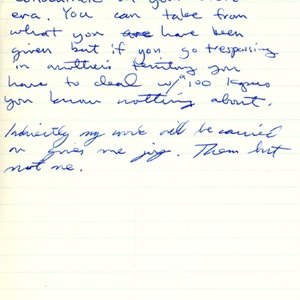 era. You can take from
what you are have been
given but if you go trespassing
in another's territory you
have to deal w/ 100
you know nothing about.
Indirectly my work will be carried
on gives me joy. Them but
not me.